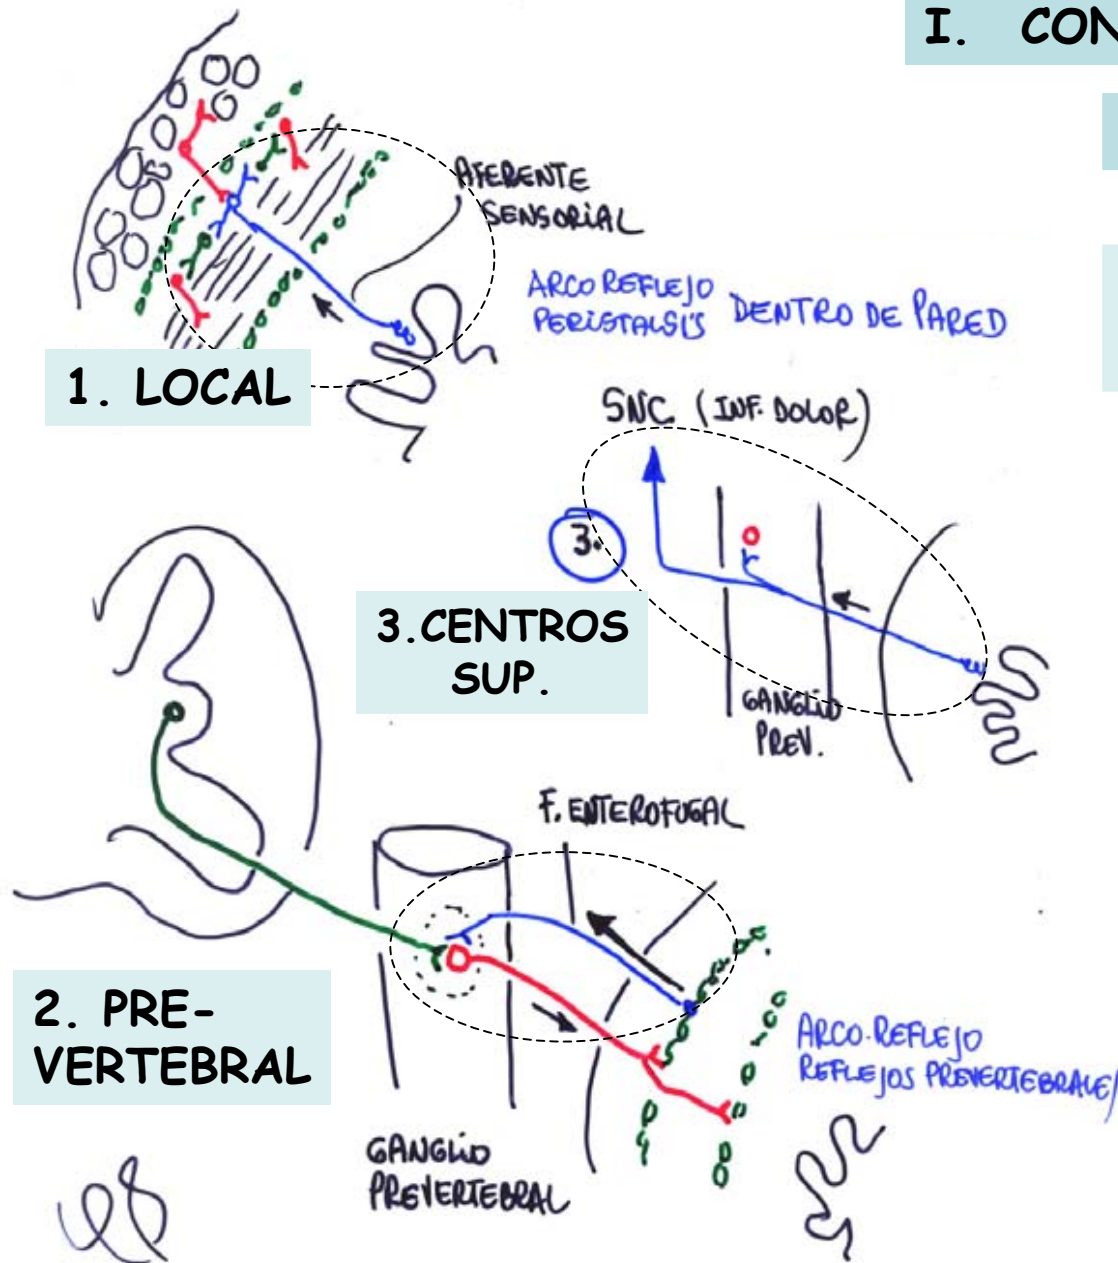 I. CON
AFERENTE
SENSORIAL
ARCO REFLEJO
PERISTALSIS DENTRO DE PARED
1. LOCAL
SNC (INF. DOLOR)
3.
3.CENTROS
SUP.
GANGLIO
PREV.
F. ENTEROFUGAL
2. PRE-
VERTEBRAL
ARCO-REFLEJO
REFLEJOS PREVERTEBRALE
GANGLIO
PREVERTEBRAL